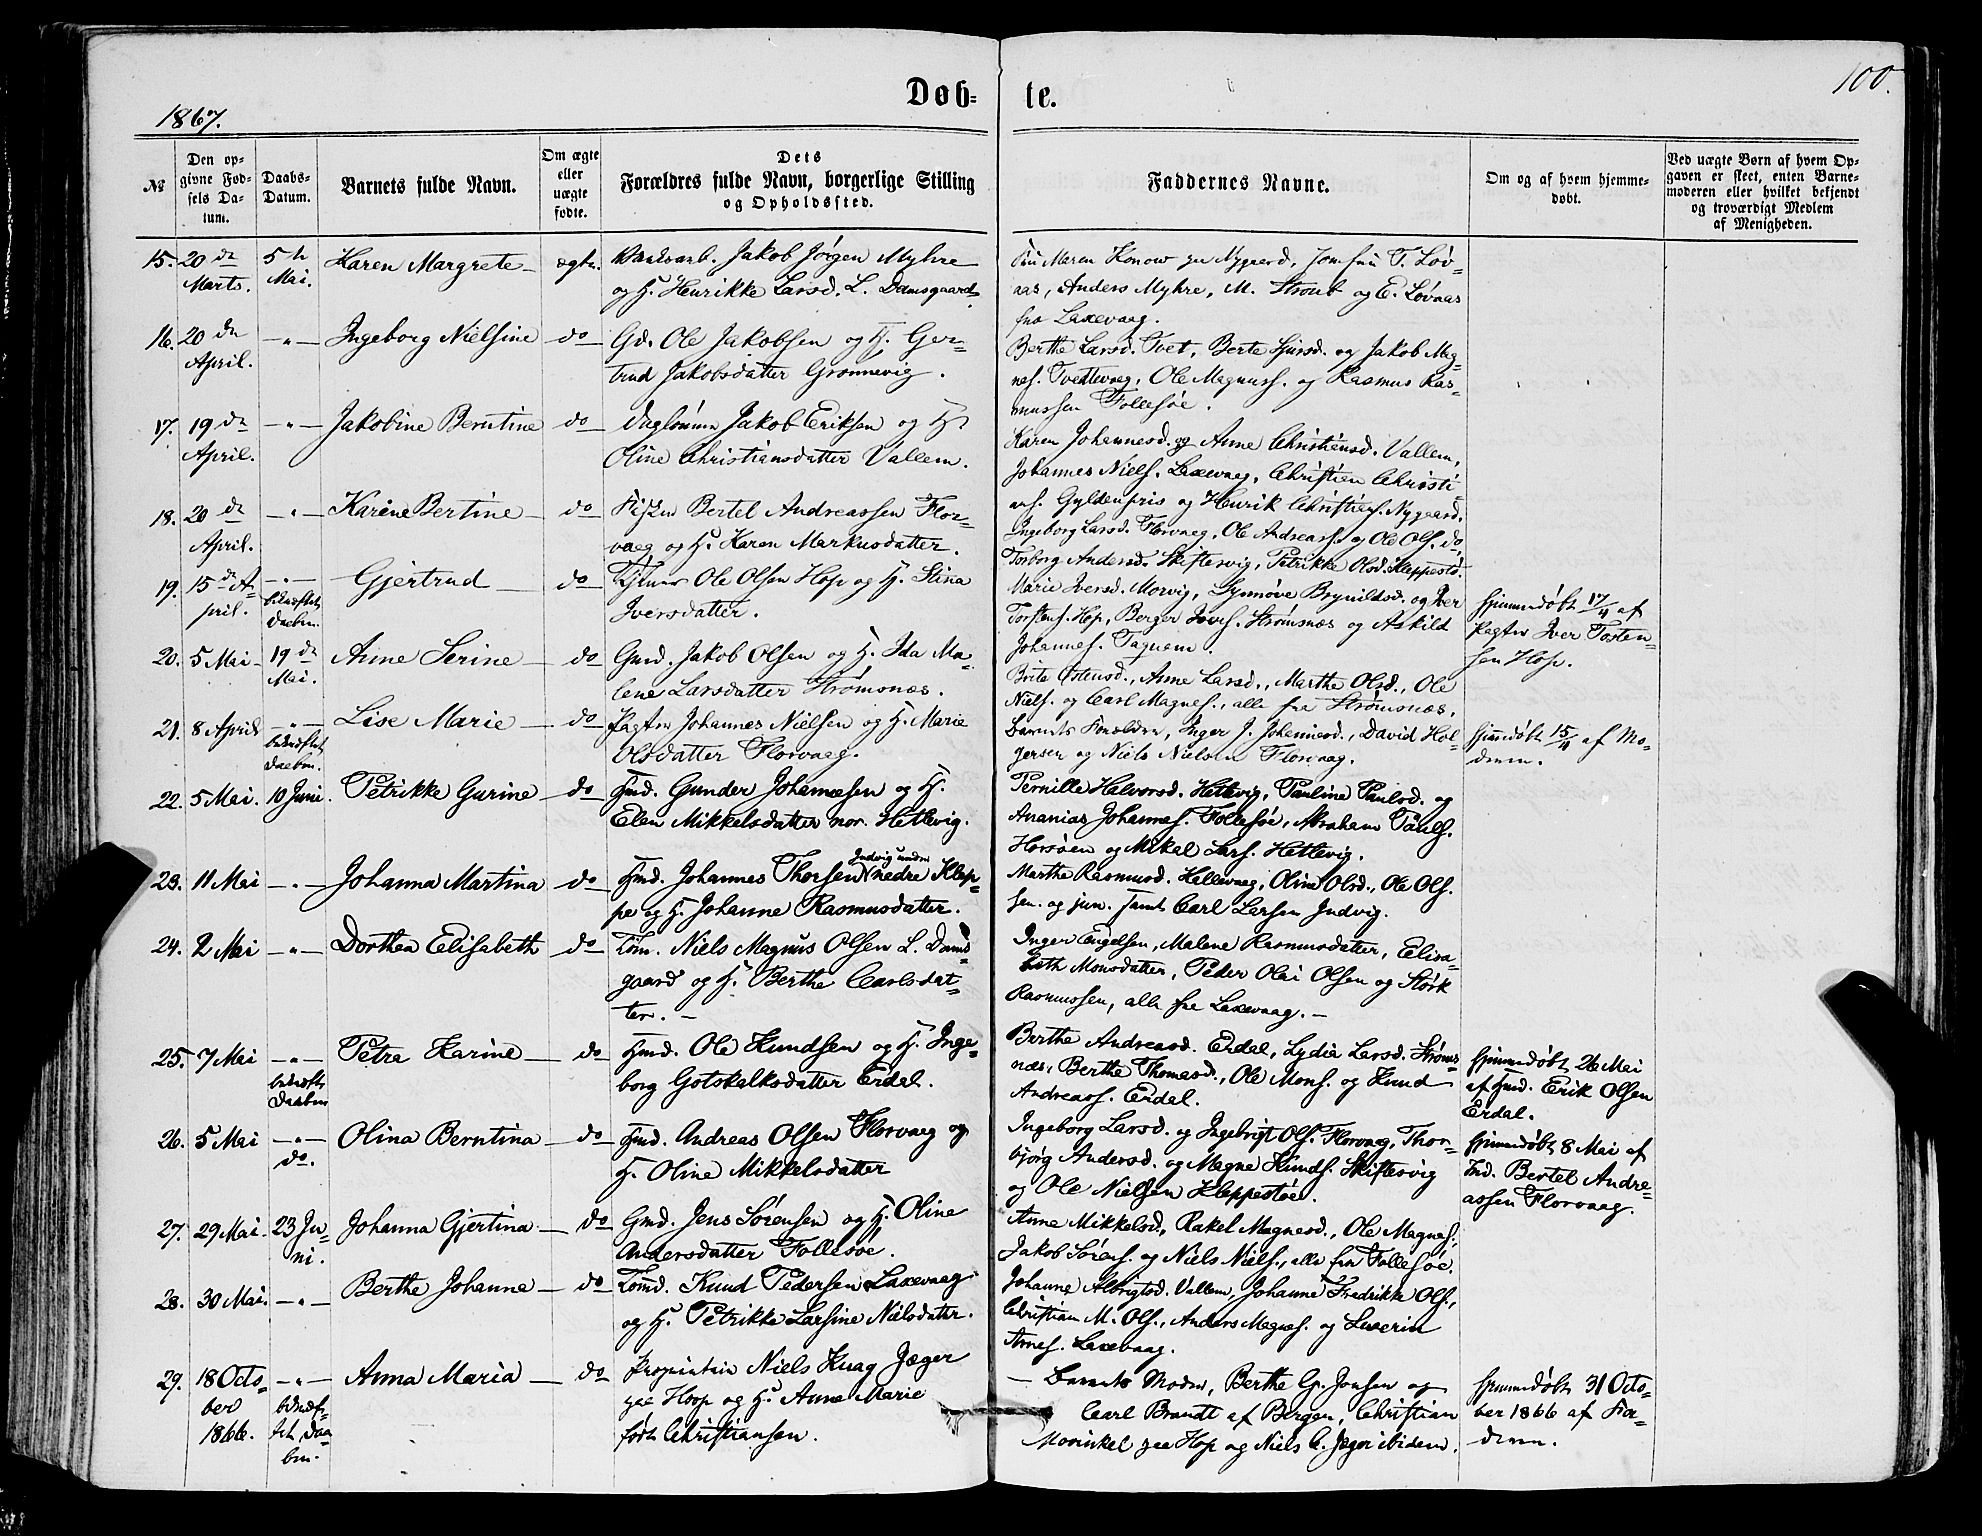 100.
Døb- te.
1867.
№
Den opgivne Fødsels Datum.
Daabs-Datum.
Barnets fulde Navn.
Om ægte eller uægte fødte.
Dets Forældres fulde Navn, borgerlige Stilling og Opholdssted.
Faddernes Navne.
Om og af hvem hjemmedøbt.
Ved uægte Børn af hvem Opgaven er skeet, enten Barnemoderen eller hvilket bekjendt og troværdigt Medlem af Menigheden.
15. 20de Marts. 5te Mai. Karen Margrete ægte. Jakob Jørgen Myhre
og H. Henrikke Larsd. L. Damsgaard.
Maren Konow Nygaard, Jomfru T. Løv-
aas, Anders Myhre, M. Stroub og E. Løvaas
fra Laxevaag.
16. 20de April. -"- Ingeborg Nielsine do Gd. Ole Jakobsen og H. Ger-
trud Jakobsdatter Grønnevig.
Berthe Larsd. Tvet, Berte Sjursd. og Jakob Mag-
nes. Tvettevaag, Ole Magnuss. og Rasmus Ras-
mussen Follesøe.
17. 19de April. -"- Jakobine Berntine do Jakob Eriksen og H.
Oline Christiansdatter Vallem.
Karen Johannesd. og Anne Christensd. Vallem,
Johannes Niels. Laxevaag, Christien Christi-
ans. Gyldenpris og Henrik Christians. Nygaard.
18. 20de April. -"- Karine Bertine do Bertel Andreassen Flor-
vaag og H. Karen Markusdatter.
Ingeborg Larsd. Florvaag, Ole Andreass. og Ole Ols. do,
Torborg Andersd. Skiftesvig, Petrikke Olsd. Kleppestø.
19. 15de April. -"- bekræftet Daaben. Gjertrud do Ole Olsen Hop og H. Stina
Iversdatter.
Marie Iversd. Morvig, Synnøve Brynildsd. og Iver
Torstens. Hop, Berger Strømsnæs og Askild
Johannes.
Hjemmedøbt 17/4 af
Iver Tosten-
sen Hop.
20. 5 Mai 19de Mai. Anne Serine do Gmd. Jakob Olsen og H. Ida Ma-
lene Larsdatter Strømsnæs.
Brite Østensd., Anne Larsd., Marthe Olsd., Ole
Niels. og Carl Magnes., alle fra Strømsnæs.
21. 8 April -"- bekræftet Daaben. Lise Marie do Johannes Nielsen og H. Marie
Olsdatter Florvaag.
Barnets Forældre, Inger J. Johannesd., David Hol-
gersen og Niels Nielsen Florvaag.
Hjemmedøbt 15/4 af Mo-
deren.
22. 5 Mai. 10 Juni. Petrikke Gurine do Hmd. Gunder Johannesen og H.
Elen Mikkelsdatter nor. Hetlevig.
Pernille Halvorsd. Hetlevig, Pauline Paulsd. og
Ananias Johannes. Follesøe, Abraham Pauls.
Horsøen og Mikal Lars. Hetlevig.
23. 11 Mai -"- Johanna Martina do Hmd. Johannes Thorsen Indvig under nedre Klep-
pe og H. Johanne Rasmusdatter.
Marthe Rasmusd. Hellevaag, Oline Olsd., Ole Ols.
sen. og jun. samt Carl Larsen Indvig.
24. 2 Mai -"- Dorthea Elisabeth do Tøm. Niels Magnus Olsen L. Dams-
gaard og H. Berthe Carlsdat-
ter.
Inger Engelsen, Malene Rasmusdatter, Elisa-
beth Monsdatter, Peder Olai Olsen og Størk
Rasmussen, alle fra Laxevaag.
25. 7 Mai -"- bekræftet Daaben Petra Karine do Hmd. Ole Knudsen og H. Inge-
borg Gotskalksdatter Erdal.
Berthe Andreasd. Erdal, Lydia Larsd. Strøms-
næs, Berthe Thomasd., Ole Mons. og Knud
Andreass. Erdal.
Hjemmedøbt 26 Mai
af Hmd. Erik Olsen
Erdal.
26. 5 Mai -"- do. Olina Berntina do Hmd. Andreas Olsen Florvaag og
H. Oline Mikkelsdatter
Ingeborg Larsd. og Ingebrigt Ols. Florvaag, Thor-
bjørg Andersd. og Magne Knuds. Skiftesvig
og Ole Nielsen Kleppestøe.
Hjemmedøbt 8 Mai af
Bertel Andre-
assen Florvaag.
27. 29 Mai. 23 Juni. Johanna Gjertina do Gmd. Jens Sørensen og H. Oline
Andersdatter Follesøe.
Anne Mikkelsd., Rakel Magnesd., Ole Magnes.,
Jakob Sørens. og Niels Niels., alle fra Follesøe.
28. 30 Mai. -"- Berthe Johanne do Knud Pedersen Laxevaag
og H. Petrikke Larsine Nielsdatter.
Johanne Albrigtsd. Vallem, Johanne Fredrikke Ols.,
Christian M. Ols., Anders Magnes. og Severin
Arnes. Laxevaag.
29. 18 October 1866. -"- bekræftet Daaben. Anna Maria do Proprietær Niels Knag Jæger
paa Hoop og H. Anne Marie
født Christiansen.
Barnets Moder, Berthe G. Jonsen og
Carl Brandt af Bergen, Christian
Mowinkel paa Hop og Niels C. Jæger ibidem.
Hjemmedøbt 31 Octo-
ber 1866 af Fa-
deren.